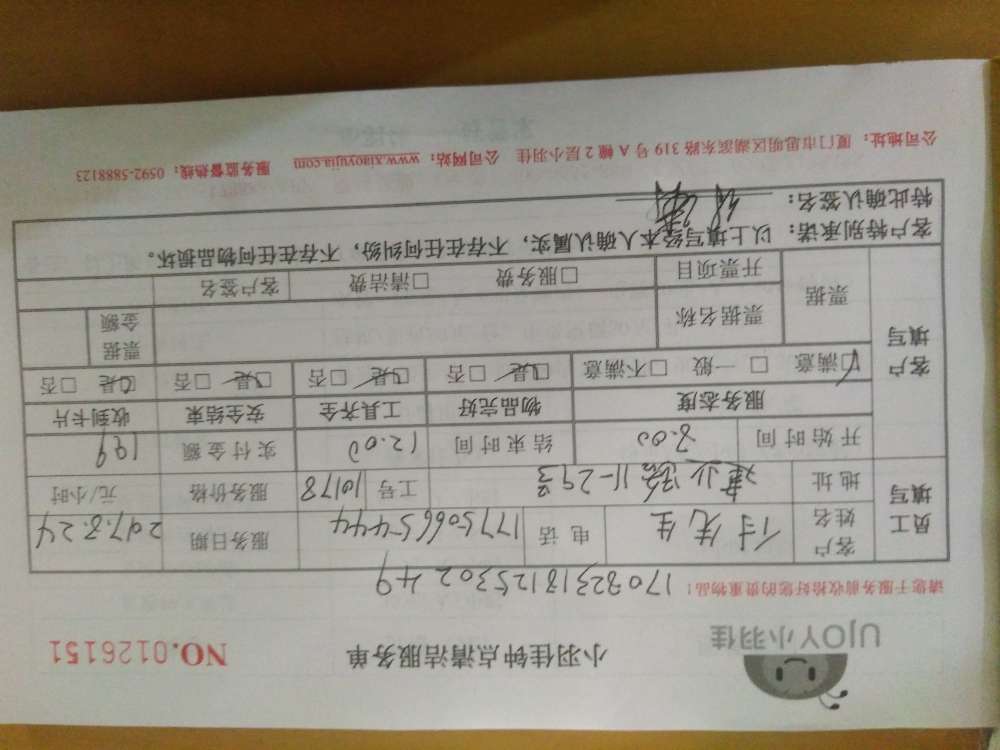 UjOY小羽佳
小羽佳钟点清洁服务单
NO.0126151
请您于服务前收拾好您的贵重物品！
1708231812530249
员工填写
客户姓名 付先生 电话 17750665444 服务日期 2017.8.24
地址 建业路11-293 工号 10178 服务价格 元/小时
开始时间 8.00 结束时间 12.00 实付金额 199
客户填写
服务态度 物品完好 工具齐全 安全结束 收到卡片
☑满意 □一般 □不满意 ☑是 □否 ☑是 □否 ☑是 □否 ☑是 □否
票据 票据名称 票据金额
开票项目 □服务费 □清洁费 客户签名
客户特别承诺：以上填写经本人确认属实，不存在任何纠纷，不存在任何物品损坏。
特此确认签名：
公司地址：厦门市思明区湖滨东路319号A幢2层小羽佳 公司网站：www.xiaoyujia.com 服务监督热线：0592-5888123